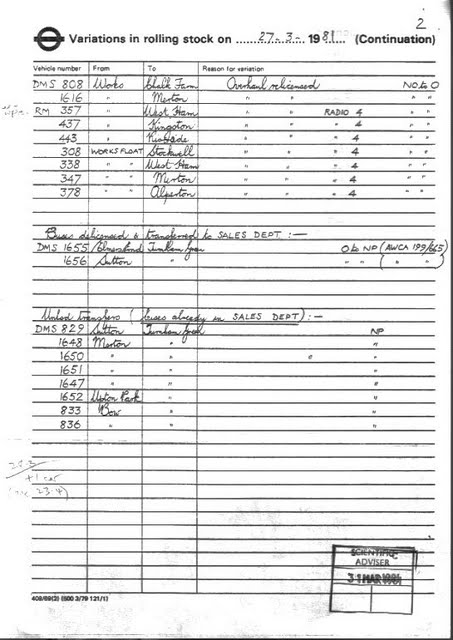 2
Variations in rolling stock on 27-3- 1981 (Continuation)
Vehicle number From To Reason for variation
DMS 808 Works Chalk Farm Overhaul relicensed NO to O
1616 " Merton " " " "
RM 357 " West Ham " " RADIO 4 " "
437 " Kingston " " " 4 " "
443 " Riverside " " " 4 " "
308 WORKS FLOAT Stockwell " " " 4 " "
338 " West Ham " " " 4 " "
347 " Merton " " " 4 " "
378 " Alperton " " " 4 " "
Buses delicensed & transferred to SALES DEPT :—
DMS 1655 Turnham Green O to NP (AWCA 199/665)
1656 Sutton " " " ( " )
Unlicd transfers (buses already in SALES DEPT) :—
DMS 829 Sutton Turnham Green NP
1648 Merton " "
1650 " " " "
1651 " " "
1647 " " "
1652 Upton Park " "
833 Bow " "
836 " " "
+1 car
23.4)
SCIENTIFIC
ADVISER
31 MAR 1981
408/69(2) (600 3/79 121/1)